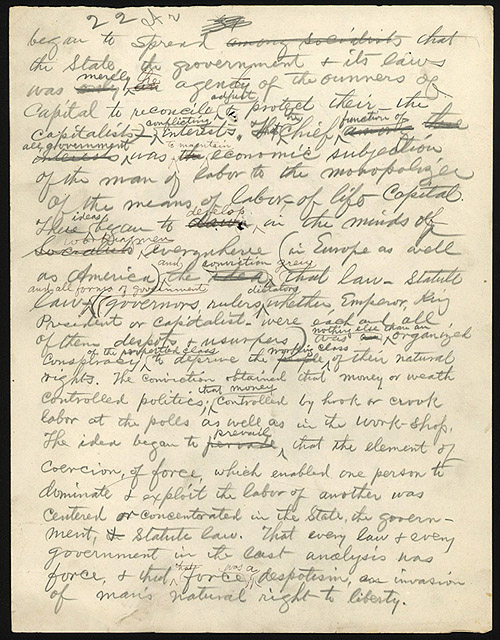 22
began to spread among socialists that
the State, the government & its laws
was only merely the agency of the owners of
Capital to reconcile, adjust & protect their - the
Capitalists - conflicting interests. that the chief function of
all government was to maintain the economic subjection
of the man of labor to the monopolizer
of the means of labor - of life - Capital.
These ideas began to develop in the minds of
Socialists workingmen everywhere (in Europe as well
as America), and the idea conviction grew that law - Statute
law - and all forms of government (governors, rulers, dictators whether Emperor, King
President or Capitalist - were each and all
of them despots & usurpers) was nothing else than an organized
Conspiracy of the propertied class to deprive the people working class of their natural
rights. The conviction obtained that money or wealth
controlled politics; that money controlled by hook or crook
labor at the polls as well as in the work-shop.
The idea began to prevail, that the element of
coercion, of force, which enabled one person to
dominate & exploit the labor of another was
centered or concentrated in the State, the govern-
ment, & Statute law. That every law & every
government in its last analysis was
force, & that force was a despotism, an invasion
of man's natural right to liberty.